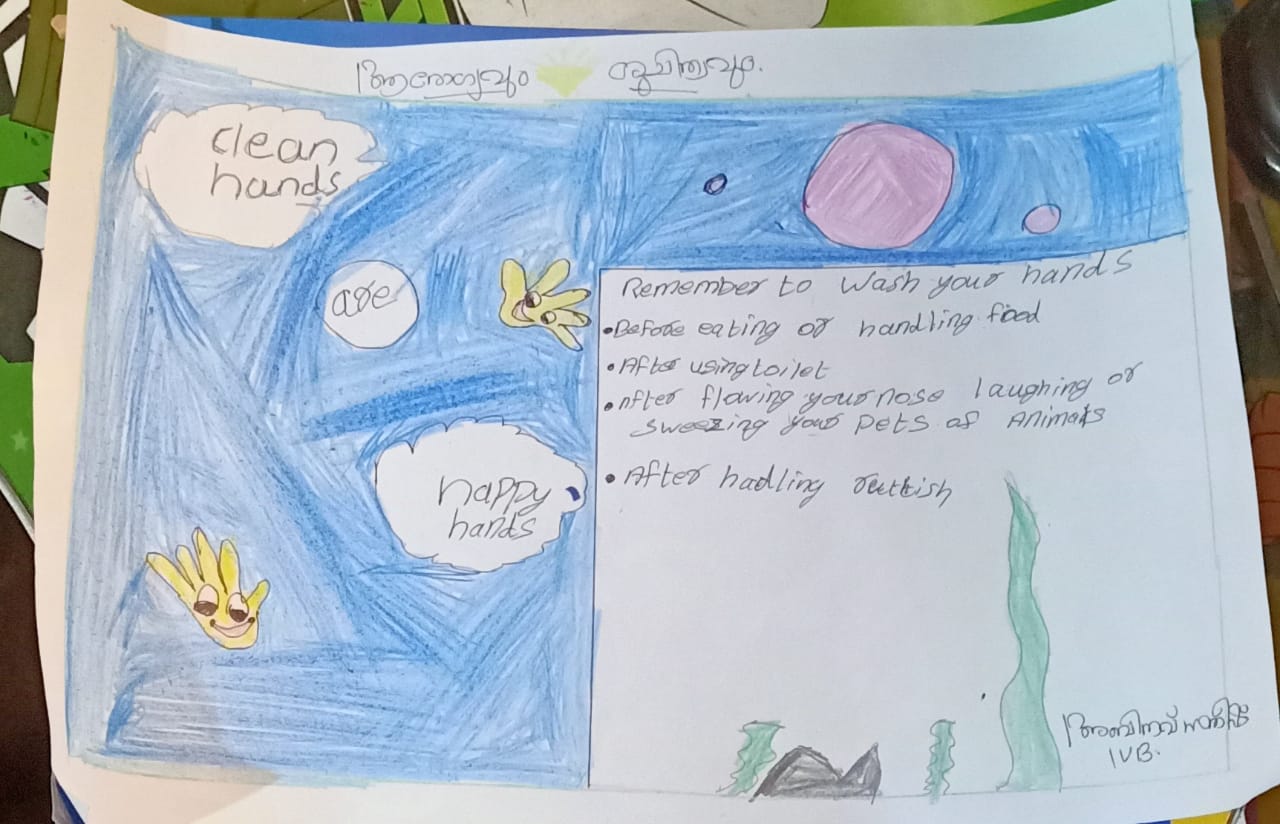 ആരോഗ്യവും ശുചിത്വവും.
clean
hands
are
happy
hands
Remember to wash your hands
•Before eating or handling food
•After using toilet
•After flowing your nose laughing or
sweezing your pets of Animals
•After hadling
അഭിനവ്
IVB.